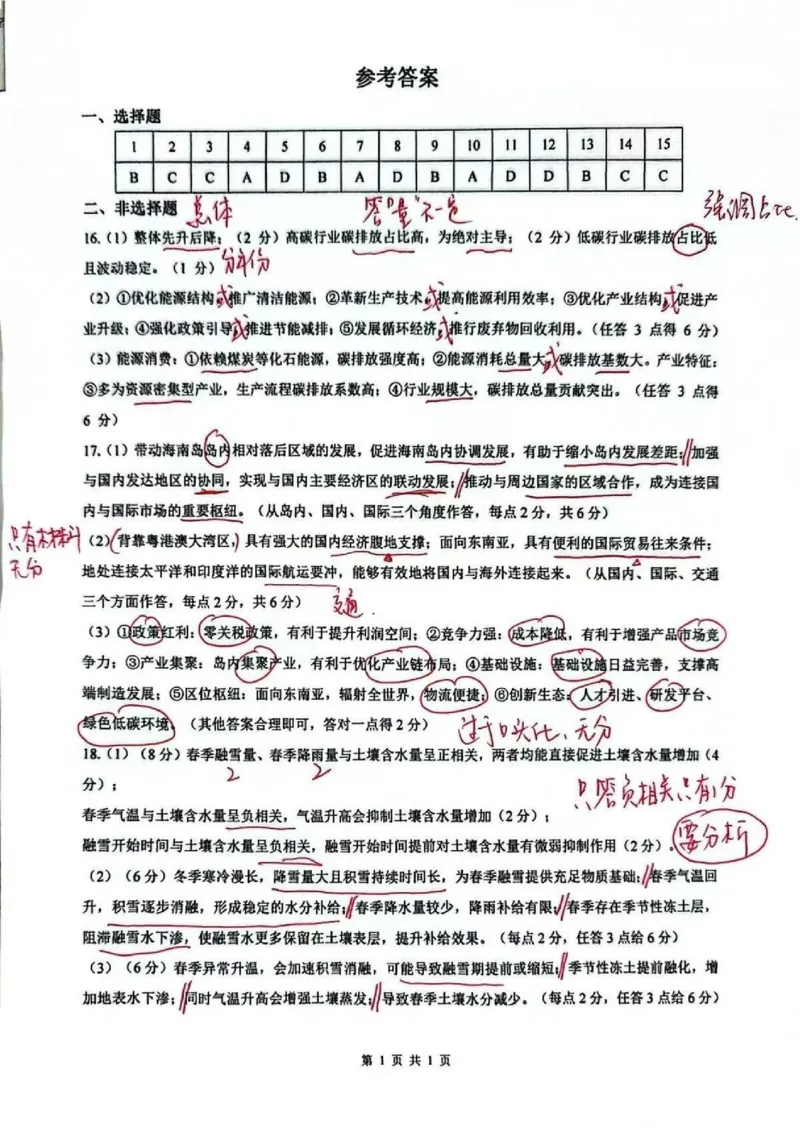 参考答案
一、选择题
1 2 3 4 5 6 7 8 9 10 11 12 13 14 15
B C C A D B A D B A D D B C C
二、非选择题 总体 答"量"不一定 强调占比.
16.(1)整体先升后降;(2 分)高碳行业碳排放占比高,为绝对主导;(2 分)低碳行业碳排放占比低
且波动稳定。(1 分) 分年份
(2)①优化能源结构或推广清洁能源;②革新生产技术或提高能源利用效率;③优化产业结构或促进产
业升级;④强化政策引导或推进节能减排;⑤发展循环经济或推行废弃物回收利用。(任答 3 点得 6 分)
(3)能源消费:①依赖煤炭等化石能源,碳排放强度高;②能源消耗总量大或碳排放基数大。产业特征:
③多为资源密集型产业,生产流程碳排放系数高;④行业规模大,碳排放总量贡献突出。(任答 3 点得
6 分)
17.(1)带动海南岛岛内相对落后区域的发展,促进海南岛内协调发展,有助于缩小岛内发展差距;加强
与国内发达地区的协同,实现与国内主要经济区的联动发展;推动与周边国家的区域合作,成为连接国
内与国际市场的重要枢纽。(从岛内、国内、国际三个角度作答,每点2分,共6分)
只有材料
无分
(2)(背靠粤港澳大湾区,)具有强大的国内经济腹地支撑;面向东南亚,具有便利的国际贸易往来条件;
地处连接太平洋和印度洋的国际航运要冲,能够有效地将国内与海外连接起来。(从国内、国际、交通
三个方面作答,每点2分,共6分) 交通.
(3)①政策红利:零关税政策,有利于提升利润空间;②竞争力强:成本降低,有利于增强产品市场竞
争力;③产业集聚:岛内集聚产业,有利于优化产业链布局;④基础设施:基础设施日益完善,支撑高
端制造发展;⑤区位枢纽:面向东南亚,辐射全世界,物流便捷;⑥创新生态:人才引进、研发平台、
绿色低碳环境。(其他答案合理即可,答对一点得2分) 过于口头化、无分
18.(1)(8分)春季融雪量、春季降雨量与土壤含水量呈正相关,两者均能直接促进土壤含水量增加(4
分); 2 2 只答负相关只有1分
春季气温与土壤含水量呈负相关,气温升高会抑制土壤含水量增加(2分);
融雪开始时间与土壤含水量呈负相关,融雪开始时间提前对土壤含水量有微弱抑制作用(2分)。 要分析
(2)(6分)冬季寒冷漫长,降雪量大且积雪持续时间长,为春季融雪提供充足物质基础;春季气温回
升,积雪逐步消融,形成稳定的水分补给;春季降水量较少,降雨补给有限;春季存在季节性冻土层,
阻滞融雪水下渗,使融雪水更多保留在土壤表层,提升补给效果。(每点2分,任答3点给6分)
(3)(6分)春季异常升温,会加速积雪消融,可能导致融雪期提前或缩短;季节性冻土提前融化,增
加地表水下渗;同时气温升高会增强土壤蒸发;导致春季土壤水分减少。(每点2分,任答3点给6分)
第 1 页 共 1 页